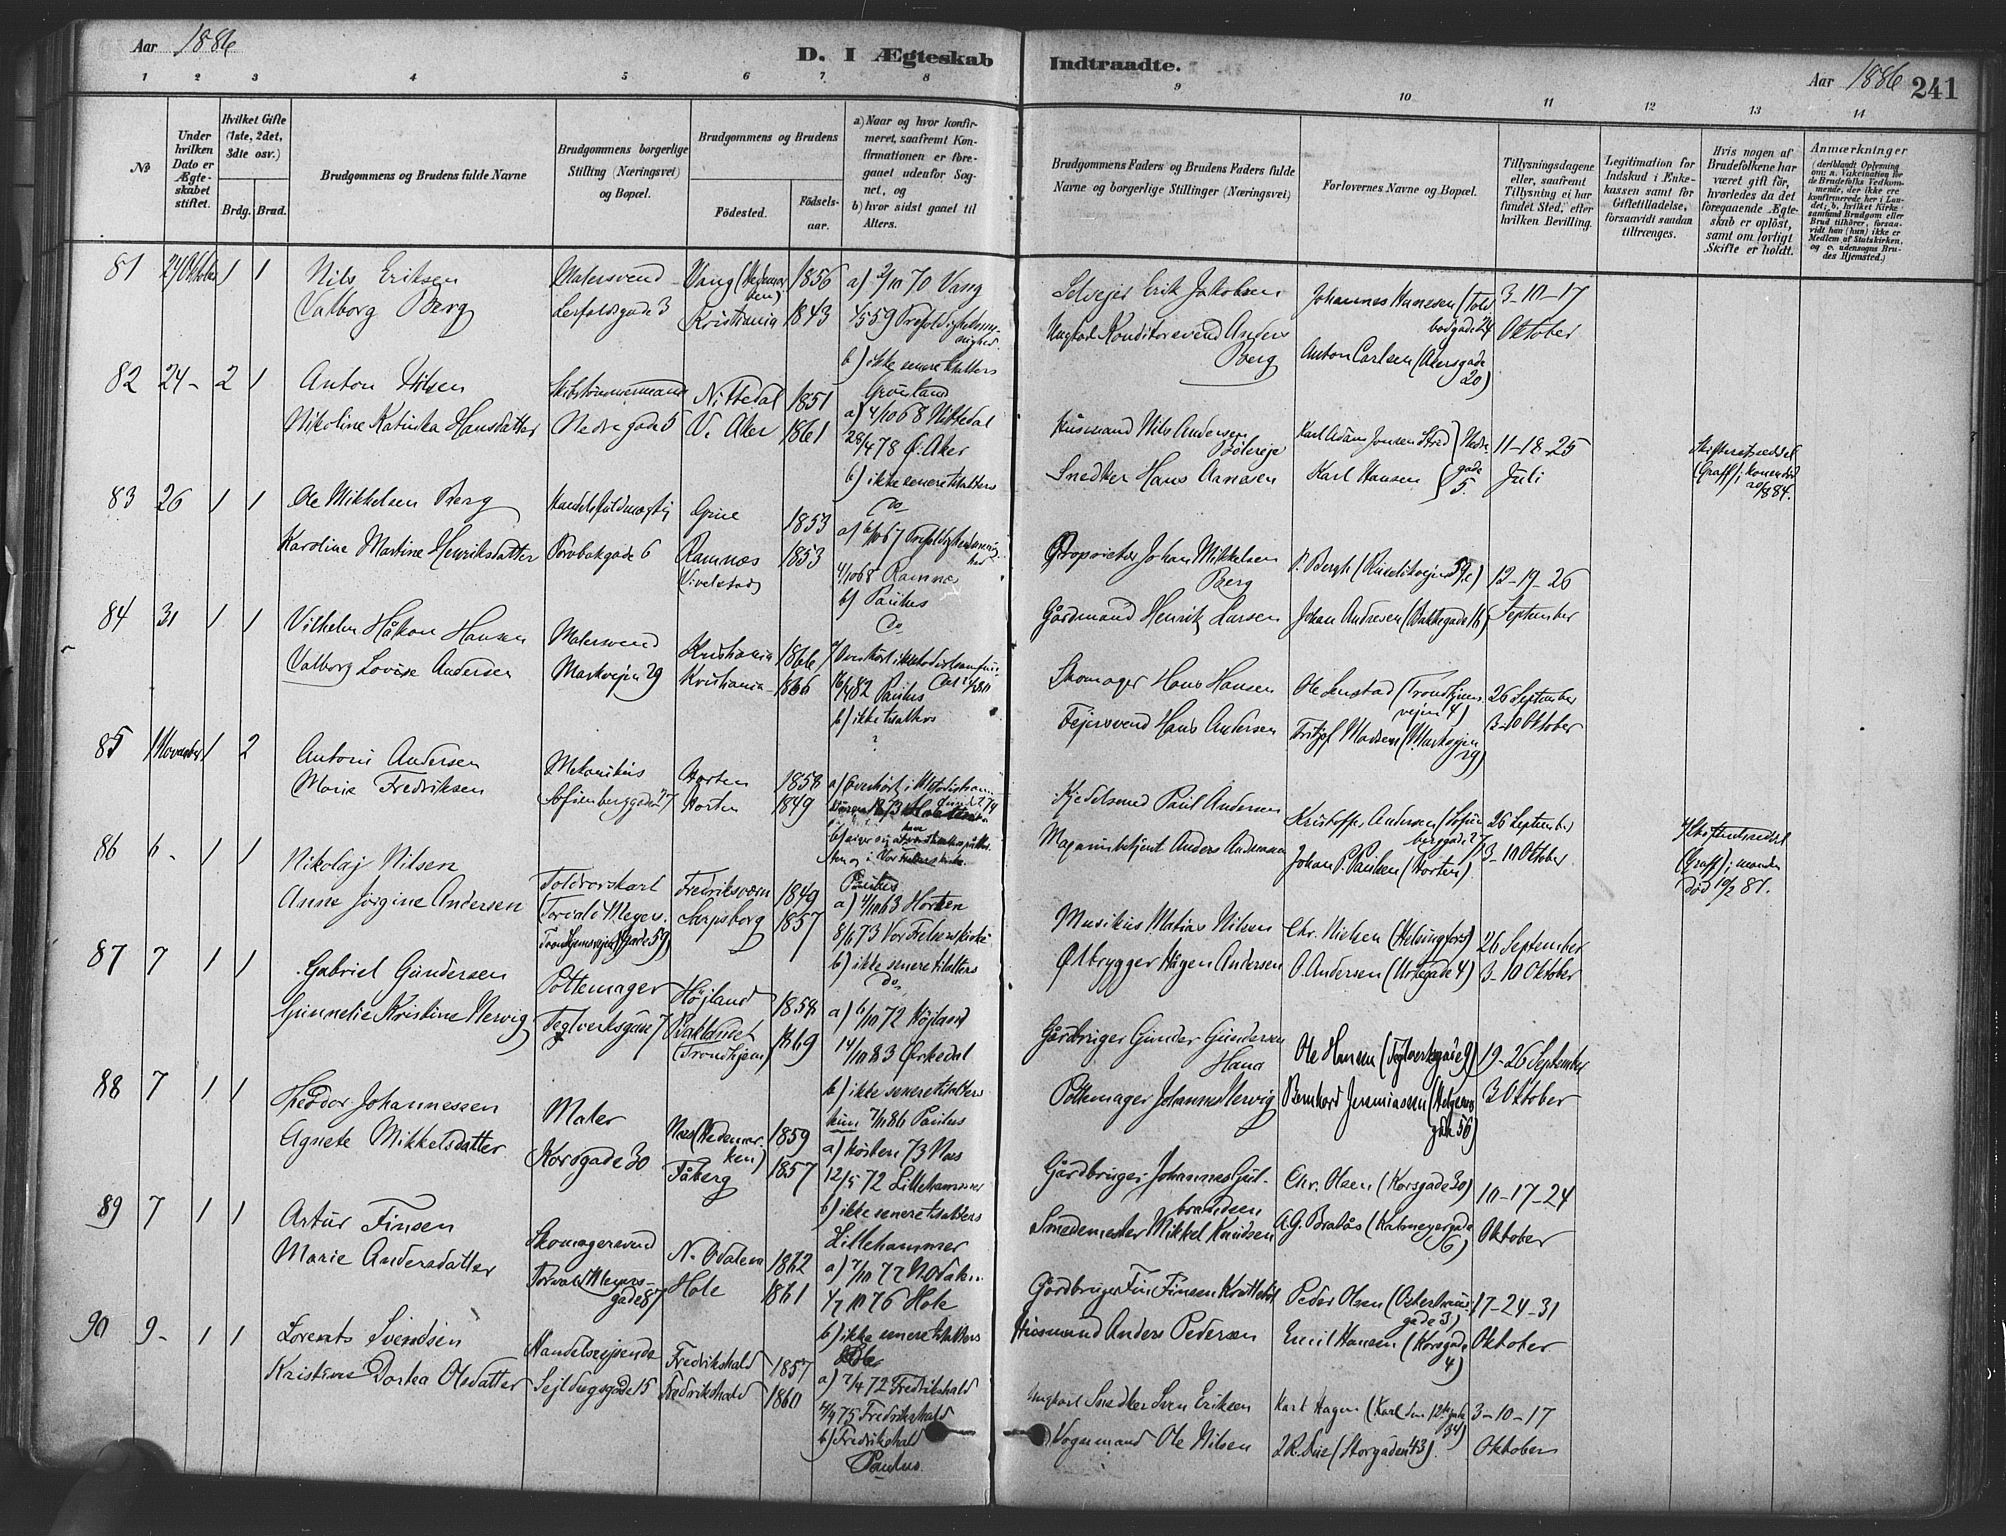 Aar 1886
D. I Ægteskab Indtraadte.
Aar 1886 241
1 2 3 4 5 6 7 8 9 10 11 12 13 14
No
Under hvilken Dato er Ægteskabet stiftet.
Hvilket Gifte (1ste, 2det, 3die osv.)
Brdg. Brud.
Brudgommens og Brudens fulde Navne
Brudgommens borgerlige Stilling (Næringsvei) og Bopæl.
Brudgommens og Brudens
Fødested.
Fødselsaar.
a) Naar og hvor konfirmeret, saafremt Konfirmationen er foregaaet udenfor Sognet, og
b) hvor sidst gaaet til Alters.
Brudgommens Faders og Brudens Faders fulde Navne og borgerlige Stillinger (Næringsvei)
Forlovernes Navne og Bopæl.
Tillysningsdagene eller, saafremt Tillysning ei har fundet Sted, efter hvilken Bevilling.
Legitimation for Indskud i Enkekassen samt for Giftetilladelse, forsaavidt saadan tiltrænges.
Hvis nogen af Brudefolkene har været gift før, hvorledes da det foregaaende Ægteskab er opløst, samt om lovligt Skifte er holdt.
Anmærkninger
(deriblandt Oplysning om: a. Vakcination for de Brudefolks Vedkommende, der ikke ere konfirmerede her i Landet; b. hvilket Kirkesamfund Brudgom eller Brud tilhører, forsaavidt han (hun) ikke er Medlem af Statskirken, og c. udensogns Brudes Hjemsted.)
81 27 Oktober 1 1
Nils Eriksen
Valborg Berg
Malersvend
3
Vang (Hedemarken) 1856
Kristiania 1843
a) 2/10 70 Vang
b) ikke senere til alters
Grønland
Selvejer Erik Jakobsen
Ungkarl Konditorsvend Anders Berg
Johannes Hansen (Toldbodgade 24
Anton Carlsen (Akersgade 20)
3-10-17
Oktober
82 24- 2 1
Anton Nilsen
Nikoline Katinka Hansdatter
Skibstømmermand
Nedregade 5
Nittedal 1851
V. Aker 1861
a) 4/10 68 Nittedal
28/4 78 Ø. Aker
b) ikke senere til alters
Do
Husmand Nils Andersen
Snedker Hans Arnesen
Karl Adam Jonsen
Karl Hansen
Nedregade 5.
11-18-25
Juli
Skifteretsseddel (Graff); konen død 84.
83 26 1 1
Ole Mikkelsen Berg
Karoline Martine Henriksdatter
Handelsfuldmægtig
6
Grue 1853
Ramnes 1853
4/10 68 Ramnes
b) Paulus
Do
Proprietær Johan Mikkelsen Berg
Gårdmand Henrik Larsen
P. Bergh
Johan Andresen (Bakkegade 16)
12-19-26
September
84 31 1 1
Vilhelm Håkon Hansen
Valborg Lovise Andersen
Malersvend
Markvejen 29
Kristiania 1866
Kristiania 1866
82 Paulus
b) ikke til alters
?
Skomager Hans Hansen
Fejersvend Hans Andersen
Ole Lenstad (Trondhjemsvejen 4)
Fritjof Madsen (Markvejen 29)
26 September
3-10 Oktober
85 1 November 1 2
Antoni Andersen
Marie Fredriksen
Mekanikus
Sofienberggaden 27
Horten 1858
Horten 1849
Paulus
Kjedelsmed Paul Andersen
Magasinbetjent Anders Andersen
Kristoffer Andersen (Sofienberggade 27)
Johan P. Paulsen (Horten)
26 September
3-10 Oktober
Skifteretsseddel (Graff); manden død 10/2 81.
86 6- 1 1
Nikolaj Nilsen
Anne Jørgine Andersen
Toldvorskarl
(Torvald Meyers gade 59)
Fredriksværn 1849
Sarpsborg 1857
a) 4/10 63 Horten
8/6 73 Vor Frelsers kirke
b) ikke senere til alters
Do
Musikus Matias Nilsen
Ølbrygger Hågen Andersen
Chr. Nielsen (Helsingfors)
O. Andersen (Urtegade 4)
26 September
3-10 Oktober
87 7 1 1
Gabriel Gundersen
Gunnelie Kristine Mervig
Pottemager
Teglverksgade 7
Højland 1858
Baklandet (Trondhjem) 1869
a) 6/10 72 Højland
14/10 83 Ørkedal
b) ikke senere til alters
hun 7/11 86 Paulus
Gårdbruger Gunder Gundersen Hana
Pottemager Johannes Mervig
Ole Hansen (Teglverksgade 9)
Bernhard Jeremiassen (Helgesensgade 56)
19-26 September
3 Oktober
88 7 1 1
Johannessen
Agnete Mikkelsdatter
Maler
Korsgade 30
Næs (Hedemarken) 1859
Fåberg 1857
a) høsten 73 Næs
12/5 72 Lillehammer
b) ikke senere til alters
Lillehammer
Gårdbruger Johannes Gulbrandsen
Smedemester Mikkel Knudsen
Chr. Olsen (Korsgade 30)
A.G. Bratås (Kalmeyergade 6)
10-17-24
Oktober
89 7 1 1
Artur Finsen
Marie Andersdatter
Skomagersvend
Torvald Meyersgade 87
N. Odalen 1862
Hole 1861
a) 7/10 77 N. Odalen
10 76 Hole
b) ikke senere til alters
Hole
Gårdbruger Fin Finsen
Husmand Anders Pedersen
Peder Olsen (Osterhausgade 3)
Emil Hansen (Korsgade 4)
17-24-31
Oktober
90 9- 1 1
Lorents Svendsen
Kristine Dorthea Olsdatter
Handelsrejsende
Sejldugsgade 15
Fredrikshald 1857
Fredrikshald 1860
a) 7/4 72 Fredrikshald
75 Fredrikshald
b) Fredrikshald
Paulus.
Ungkarl Snedker Sven Eriksen
Vognmand Ole Nilsen
Karl Hagen (Karl den 12tes gade 34)
L.R. Due (Storgaden 43).
3-10-17
Oktober